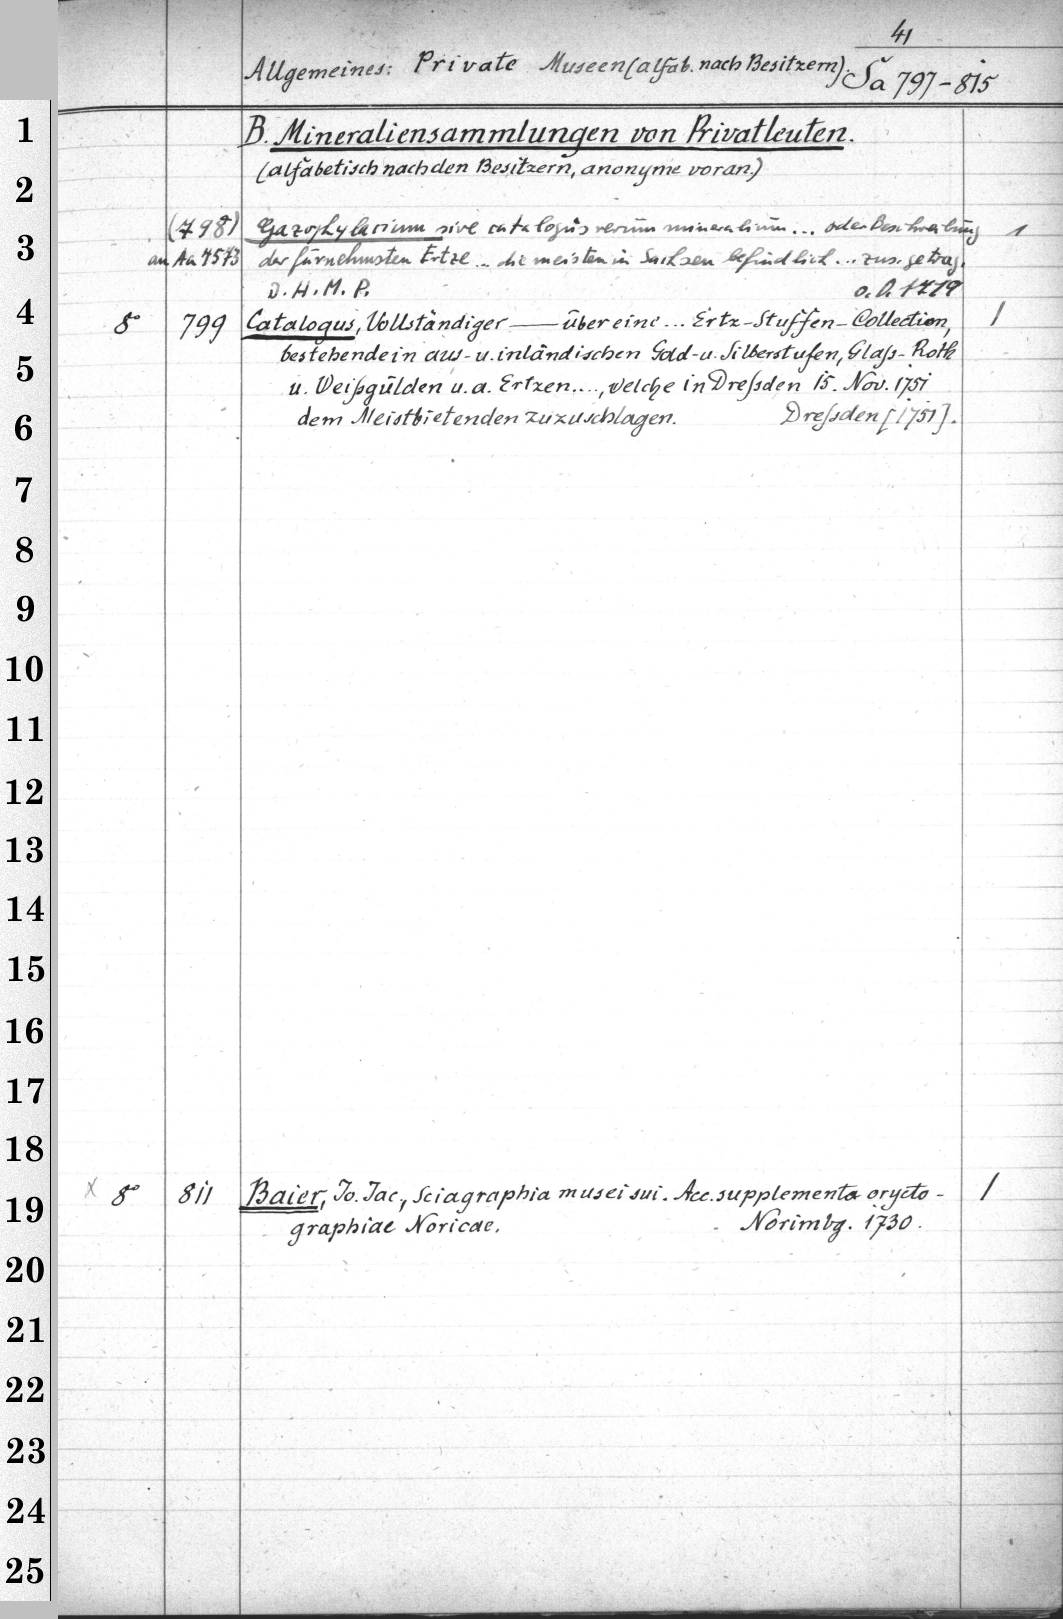 41
Allgemeines: Private Museen (alfab. nach Besitzern). Sa 797-815
1
B. Mineraliensammlungen von Privatleuten.
2
(alfabetisch nach den Besitzern, anonyme voran.)
(798) Gazophylacium sive catalogus rerum mineralium... oder Beschreibung 1
3
an Aa 1573 der fürnehmsten Ertze... die meisten in Sachsen befindlich... zus. getrag.
D. H. M. P. o. O. 1719
4
8° 799 Catalogus, Vollständiger — über eine... Ertz-Stuffen-Collection, 1
bestehende in aus- u. inländischen Gold- u. Silberstufen, Glaß- Roth
5
u. Weißgülden u. a. Ertzen...., welche in Dreßden 15. Nov. 1751
6
dem Meistbietenden zuzuschlagen. Dreßden [1751].
7
8
9
10
11
12
13
14
15
16
17
18
x 8° 811 Baier, Jo. Jac., Sciagraphia musei sui. Acc. supplementa orycto- 1
19
graphiae Noricae. Norimbg. 1730.
20
21
22
23
24
25